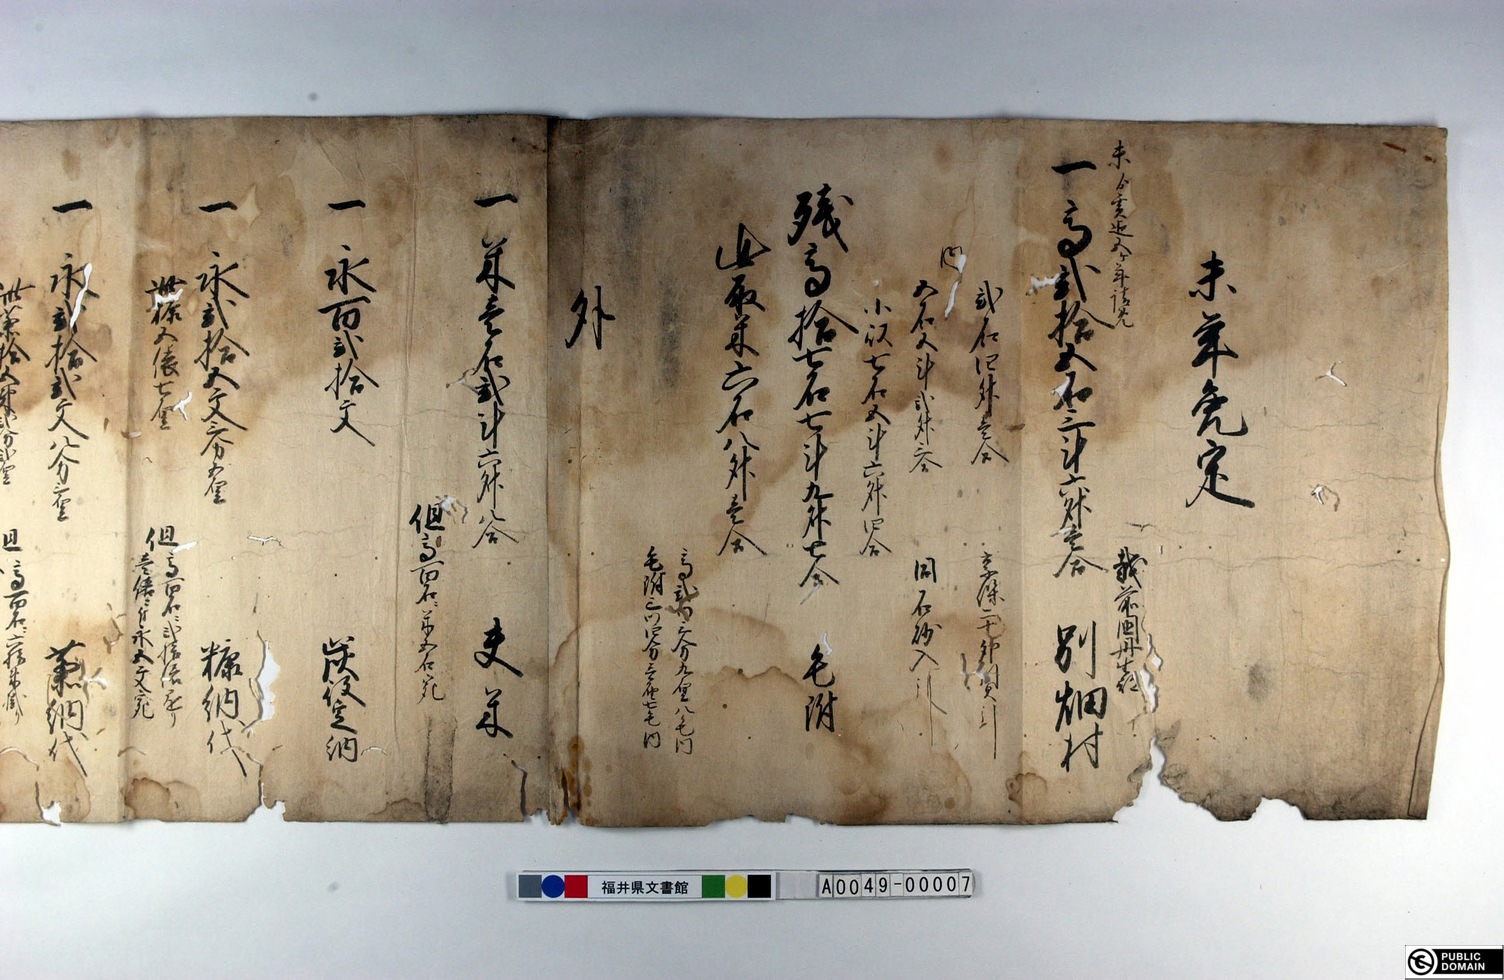 未年免定
越前国丹生郡
未ゟ亥迄五ヶ年請免
一高弐拾五石三斗六升壱合 別畑村
弐石四升壱合
内
五石五斗弐升三合 同石砂入引
小以七石五斗六升四合
残高拾七石七斗九升七合 毛附
此取米六石八升壱合
高弐ツ三分九厘八毛内
毛附三ツ四分壱厘七毛内
外
一米壱石弐斗六升八合 夫米
但高百石ニ米五石宛
一永百弐拾文 炭役定納
一永弐拾五文三分五厘 糠納代
此糠五俵七厘
但高百石ニ弐拾俵懸り
壱俵ニ付永五文宛
一永弐拾弐文八分三厘 藁納代
但高百石ニ六拾束懸り
福井県文書館
A0049-00007
PUBLIC
DOMAIN